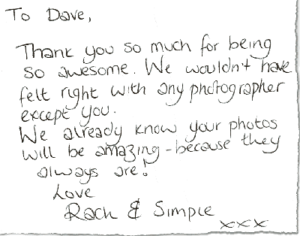 To Dave,
Thank you so much for being
so awesome. We wouldn't have
felt right with any photographer
except you.
We already know your photos
will be amazing - because they
always are!
Love
Rach & Simple
xxx